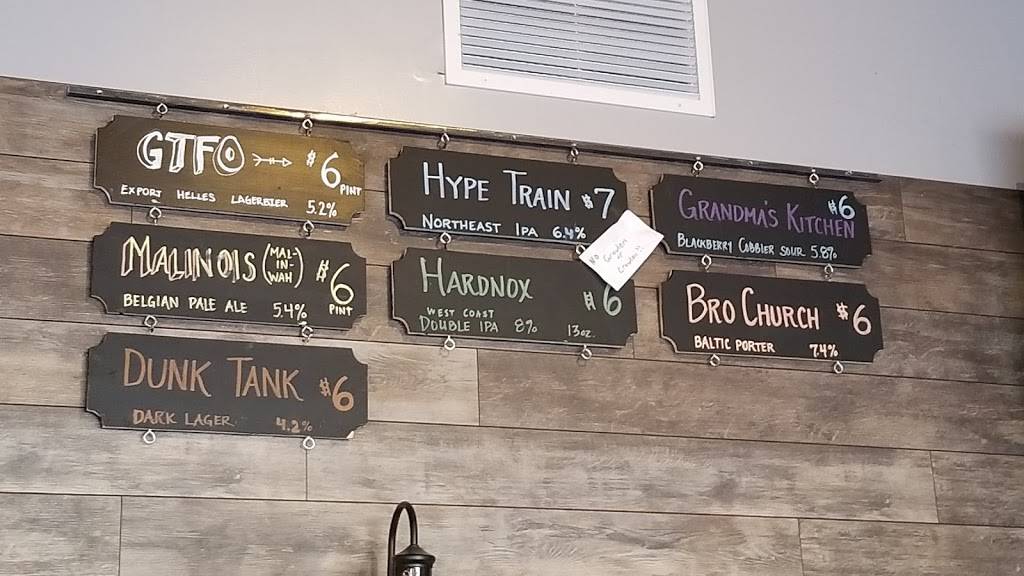 GTFO $6 PINT
EXPORT HELLES LAGERBIER 5.2%
MALINOIS (MAL-IN-WAH) $6 PINT
BELGIAN PALE ALE 5.4%
DUNK TANK $6
DARK LAGER 4.2%
HYPE TRAIN $7
NORTHEAST IPA 6.4%
NO
Growlers
or
HARDNOX $6
WEST COAST
DOUBLE IPA 8% 13oz.
GRANDMA'S KITCHEN $6
BLACKBERRY COBBLER SOUR 5.8%
BRO CHURCH $6
BALTIC PORTER 7.4%